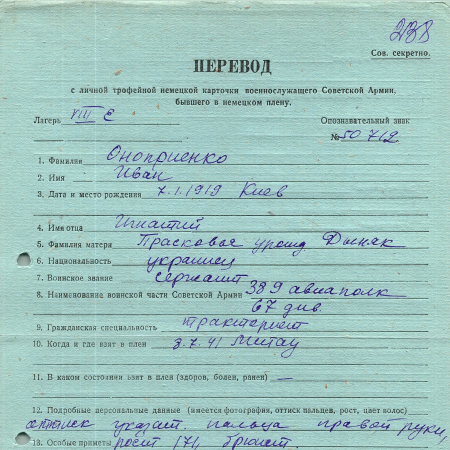 238
Сов. секретно.
ПЕРЕВОД
с личной трофейной немецкой карточки военнослужащего Советской Армии,
бывшего в немецком плену.
Лагерь VIII E Опознавательный знак
№ 50712
1. Фамилия Оноприенко
2. Имя Иван
3. Дата и место рождения 7.1.1919 Киев
4. Имя отца Игнатий
5. Фамилия матери Прасковья урожд
6. Национальность украинец
7. Воинское звание сержант
8. Наименование воинской части Советской Армии 389 авиаполк
67 див.
9. Гражданская специальность тракторист
10. Когда и где взят в плен 8.7.41 Митау
11. В каком состоянии взят в плен (здоров, болен, ранен) —
12. Подробные персональные данные (имеется фотография, оттиск пальцев, рост, цвет волос)
оттиск указат. пальца правой руки,
13. Особые приметы рост 171, брюнет